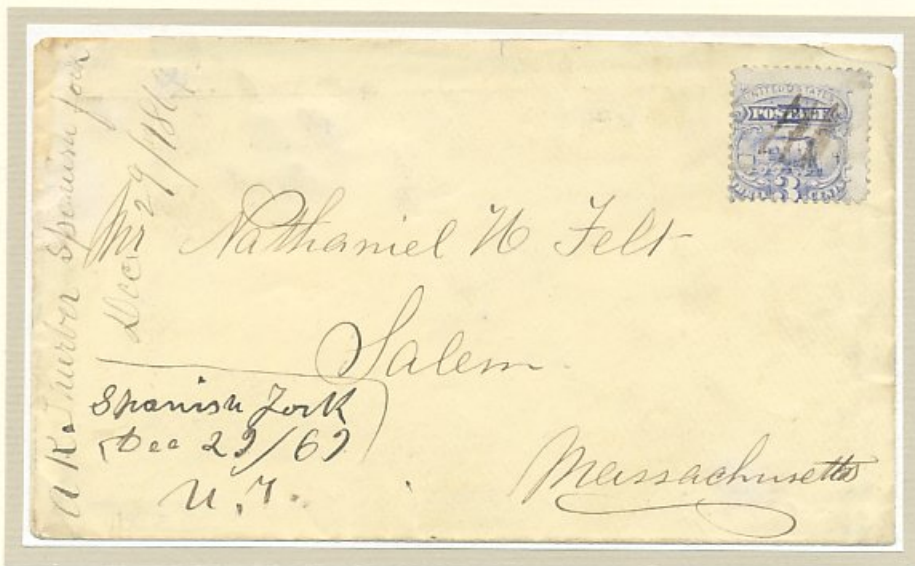 A K Thurber Spanish fork
Dec 29/1869
UNITED STATES
POSTAGE
3
Mr Nathaniel H Felt
Salem
Massachusetts
Spanish Fork
Dec 29/69
U.T.